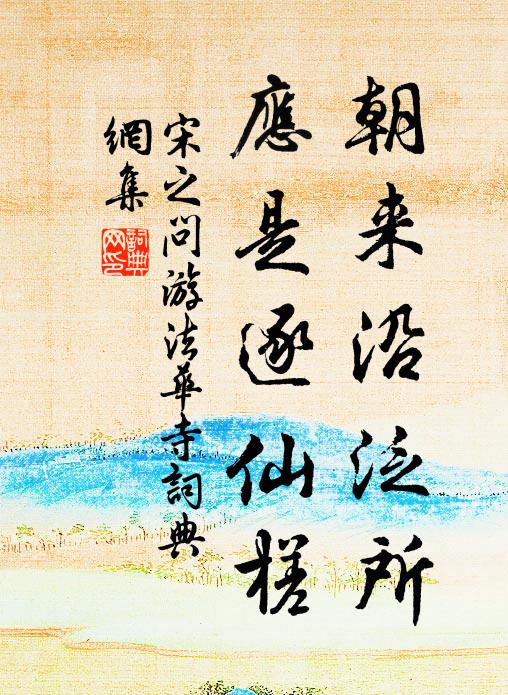 朝来沿泛所
應是逐仙槎
宋之问游法華寺詞典
網集
詞典
网印